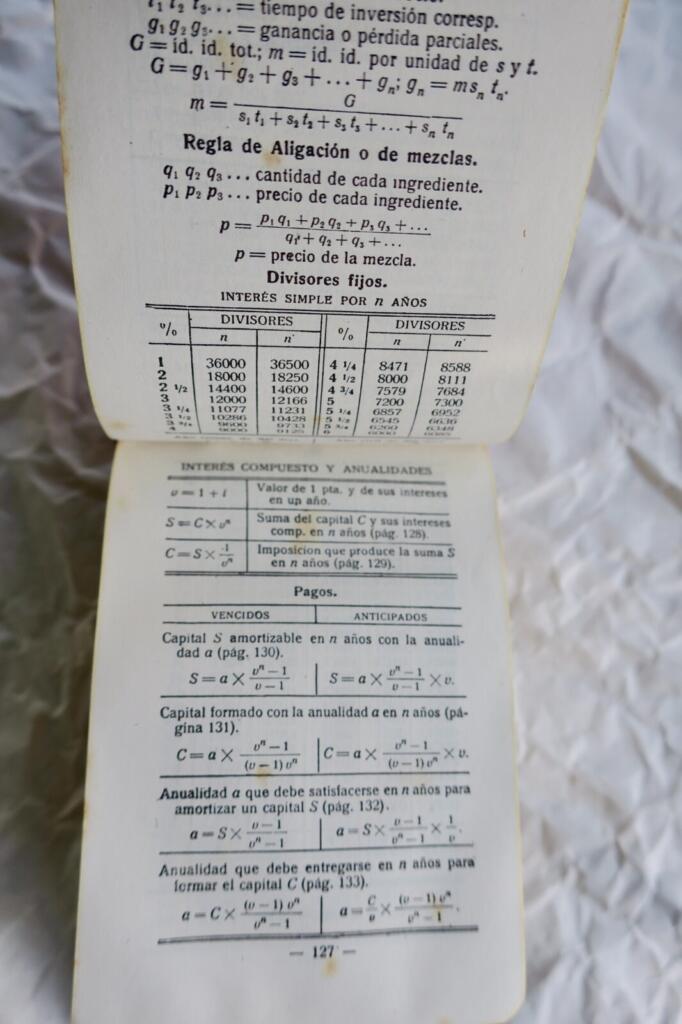 t₁ t₂ t₃... = tiempo de inversión corresp.
g₁ g₂ g₃... = ganancia o pérdida parciales.
G = íd. íd. tot.; m = íd. íd. por unidad de s y t.
G = g₁ + g₂ + g₃ + ... + gₙ; gₙ = m sₙ tₙ.
m = G / (s₁ t₁ + s₂ t₂ + s₃ t₃ + ... + sₙ tₙ)
Regla de Aligación o de mezclas.
q₁ q₂ q₃ ... cantidad de cada ingrediente.
p₁ p₂ p₃ ... precio de cada ingrediente.
p = (p₁ q₁ + p₂ q₂ + p₃ q₃ + ...) / (q₁ + q₂ + q₃ + ...)
p = precio de la mezcla.
Divisores fijos.
INTERÉS SIMPLE POR n AÑOS
% DIVISORES % DIVISORES
n n' n n'
1 36000 36500 4 1/4 8471 8588
2 18000 18250 4 1/2 8000 8111
2 1/2 14400 14600 4 3/4 7579 7684
3 12000 12166 5 7200 7300
3 1/4 11077 11231 5 1/4 6857 6952
3 1/2 10286 10428 5 1/2 6545 6636
3 3/4 9600 9733 5 3/4 6260 6348
4 9000 9125 6 6000 6083
INTERÉS COMPUESTO Y ANUALIDADES
v = 1 + i Valor de 1 pta. y de sus intereses
en un año.
S = C × vⁿ Suma del capital C y sus intereses
comp. en n años (pág. 128).
C = S × 1/vⁿ Imposicion que produce la suma S
en n años (pág. 129).
Pagos.
VENCIDOS ANTICIPADOS
Capital S amortizable en n años con la anuali-
dad a (pág. 130).
S = a × (vⁿ − 1)/(v − 1) S = a × (vⁿ − 1)/(v − 1) × v.
Capital formado con la anualidad a en n años (pá-
gina 131).
C = a × (vⁿ − 1)/((v − 1) vⁿ) C = a × (vⁿ − 1)/((v − 1) vⁿ) × v.
Anualidad a que debe satisfacerse en n años para
amortizar un capital S (pág. 132).
a = S × (v − 1)/(vⁿ − 1) a = S × (v − 1)/(vⁿ − 1) × 1/v.
Anualidad que debe entregarse en n años para
formar el capital C (pág. 133).
a = C × ((v − 1) vⁿ)/(vⁿ − 1) a = C/v × ((v − 1) vⁿ)/(vⁿ − 1).
— 127 —